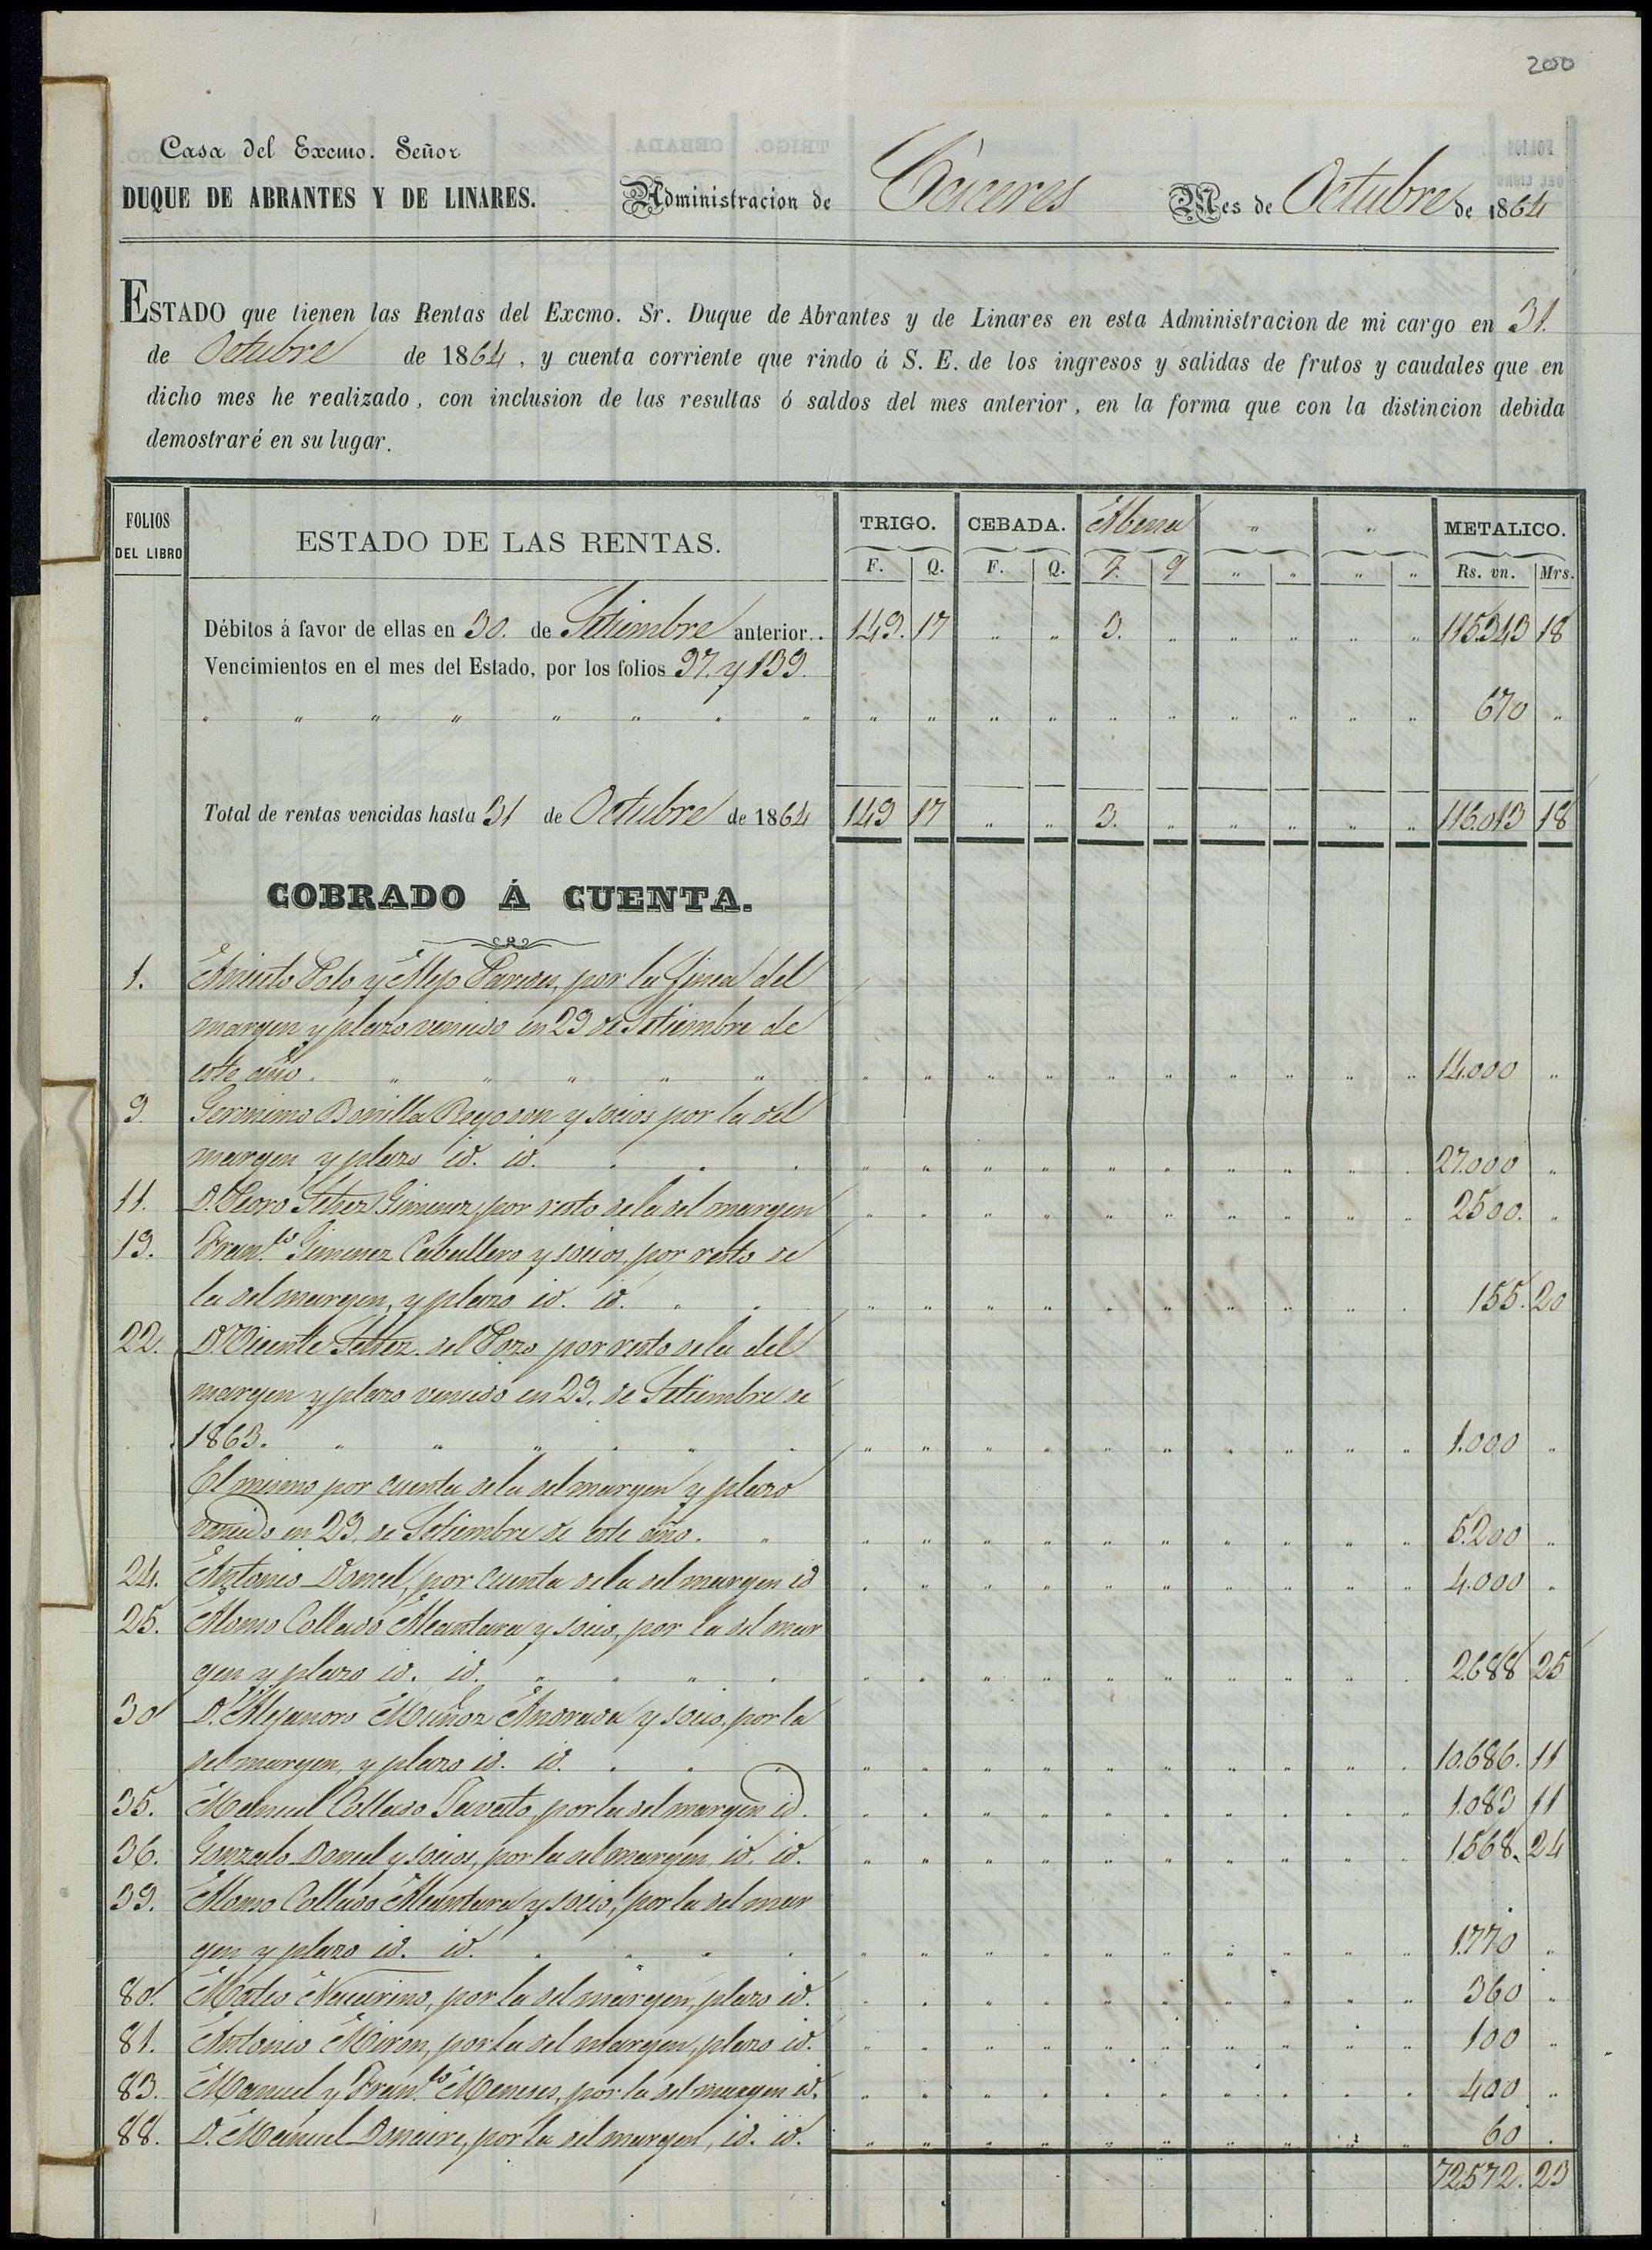 200
Casa del Excmo. Señor
DUQUE DE ABRANTES Y DE LINARES. Administracion de Cáceres Mes de Octubre de 1864
ESTADO que tienen las Rentas del Excmo. Sr. Duque de Abrantes y de Linares en esta Administracion de mi cargo en 31.
de Octubre de 1864, y cuenta corriente que rindo á S. E. de los ingresos y salidas de frutos y caudales que en
dicho mes he realizado, con inclusion de las resultas ó saldos del mes anterior, en la forma que con la distincion debida
demostraré en su lugar.
FOLIOS DEL LIBRO ESTADO DE LAS RENTAS. TRIGO. CEBADA. Abena " " METALICO.
F. Q. F. Q. F. Q " " " " Rs. vn. Mrs.
Débitos á favor de ellas en 30. de Setiembre anterior.. 149. 17 " " 3. " " " " " 115.343 18
Vencimientos en el mes del Estado, por los folios 97. y 139.
" " " " " " " " " " " " " " " " " " 670 "
Total de rentas vencidas hasta 31 de Octubre de 1864 149 17 " " 3. " " " " " 116.013 18
COBRADO Á CUENTA.
1. Aniceto Polo y Alejo Paredes, por la finca del
margen y plazo vencido en 29 de Setiembre de
este año. " " " " " " " " " " " " " " " 14.000 "
9. Geronimo Bonilla Reyoson y socios por la del
margen y plazo id. id. . . . " " " " " " " " " . 27.000 "
11. D. Pedro Sethez Gimenez, por resto de la del margen " " " " " " " " " " 2500. "
19. Fran.co Gimenez Caballero y socios, por resto de
la del margen, y plazo id. id. " . " " " " . " " " " . 155. 20
22. D. Vicente Sethez. del Pozo por resto de la del
margen y plazo vencido en 29. de Setiembre de
1863. " " " . " . " " " " " " . " " " 1.000 "
El mismo por cuenta de la del margen y plazo
vencido en 29. de Setiembre de este año. " " " " " " " " " " " 5.200 "
24. Antonio Doncel, por cuenta de la del margen id . " " " " " " " " " 4.000 "
25. Alonso Collado Alcantara y socio, por la del mar
gen y plazo id. id. " " " . " . " " " " " " " . 2.688 25
30 D. Alejandro Muñoz Andrada y socio, por la
del margen, y plazo id. id. . " . " " " " " " " " " . 10.686. 11
35. Manuel Collado Tavesto, por la del margen id. " . " " " " " . . " 1.083 11
36. Gonzalo Doncel y socios, por la del margen, id. id. " " " " " " " " " . 1.568. 24
39. Alonso Collado Alcantara y socio, por la del mar
gen y plazo id. id. . " " . " " " " " " " " " " 1.770 "
80. Mateo Nacarino, por la del margen, plazo id. " . " " " " " " " " 360 "
81. Antonio Miron, por la del margen, plazo id. " " " " " " " " " " 100 "
83. Manuel y Fran.co Meneses, por la del margen id. " " " " . " " . . . 400 "
88. D. Manuel Donaire, por la del margen, id. id. " " " " " " " " " " 60 .
72.572. 23